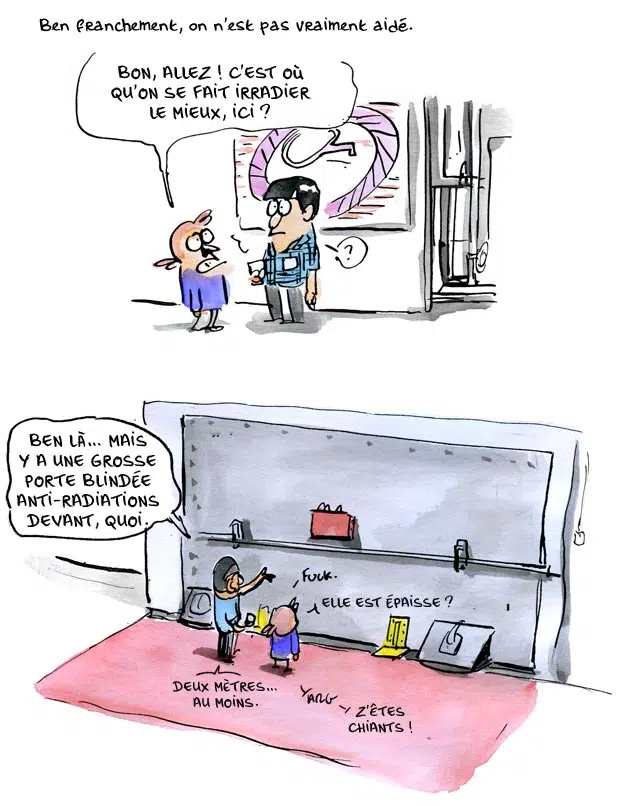 Ben franchement, on n'est pas vraiment aidé.
BON, ALLEZ ! C'EST OÙ
QU'ON SE FAIT IRRADIER
LE MIEUX, ICI ?
?
BEN LÀ... MAIS
Y A UNE GROSSE
PORTE BLINDÉE
ANTI-RADIATIONS
DEVANT, QUOI.
FUCK.
ELLE EST ÉPAISSE ?
DEUX MÈTRES...
AU MOINS.
YARG
Z'ÊTES
CHIANTS !